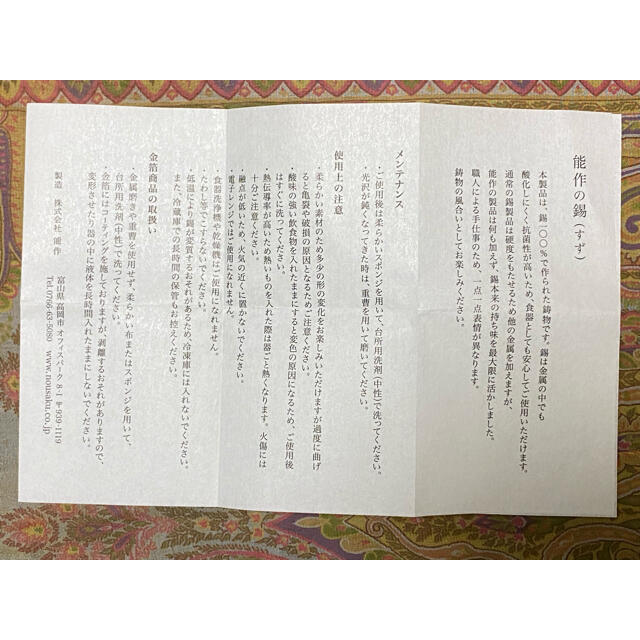 能作の錫（すず）
本製品は、錫一〇〇％で作られた鋳物です。錫は金属の中でも
酸化しにくく抗菌性が高いため、食器としても安心してご使用いただけます。
通常の錫製品は硬度をもたせるため他の金属を加えますが、
能作の製品は何も加えず、錫本来の持ち味を最大限に活かしました。
職人による手仕事のため、一点一点表情が異なります。
鋳物の風合いとしてお楽しみください。
メンテナンス
・ご使用後は柔らかいスポンジを用いて、台所用洗剤（中性）で洗ってください。
・光沢が鈍くなってきた時は、重曹を用いて磨いてください。
使用上の注意
・柔らかい素材のため多少の形の変化をお楽しみいただけますが過度に曲げ
ると亀裂や破損の原因となるためご注意ください。
酸味の強い飲食物を入れたままにすると変色の原因になるため、ご使用後
はすぐに洗ってください。
熱伝導率が高いため熱いものを入れた際は器ごと熱くなります。火傷には
十分ご注意ください。
・融点が低いため、火気の近くに置かないでください。
・電子レンジではご使用になれません。
・食器洗浄機や乾燥機はご使用になれません。
・たわし等でこすらないでください。
・低温により錫が変質するおそれがあるため、冷凍庫には入れないでください。
また、冷蔵庫での長時間の保管もお控えください。
金箔商品の取扱い
・金属磨きや重曹を使用せず、柔らかい布またはスポンジを用いて、
台所用洗剤（中性）で洗ってください。
・金箔にはコーティングを施しておりますが、剥離するおそれがありますので、
変形させたり器の中に液体を長時間入れたままにしないでください。
製造 株式会社 能作
富山県高岡市オフィスパーク8-1 〒939-1119
Tel.0766-63-5080 www.nousaku.co.jp